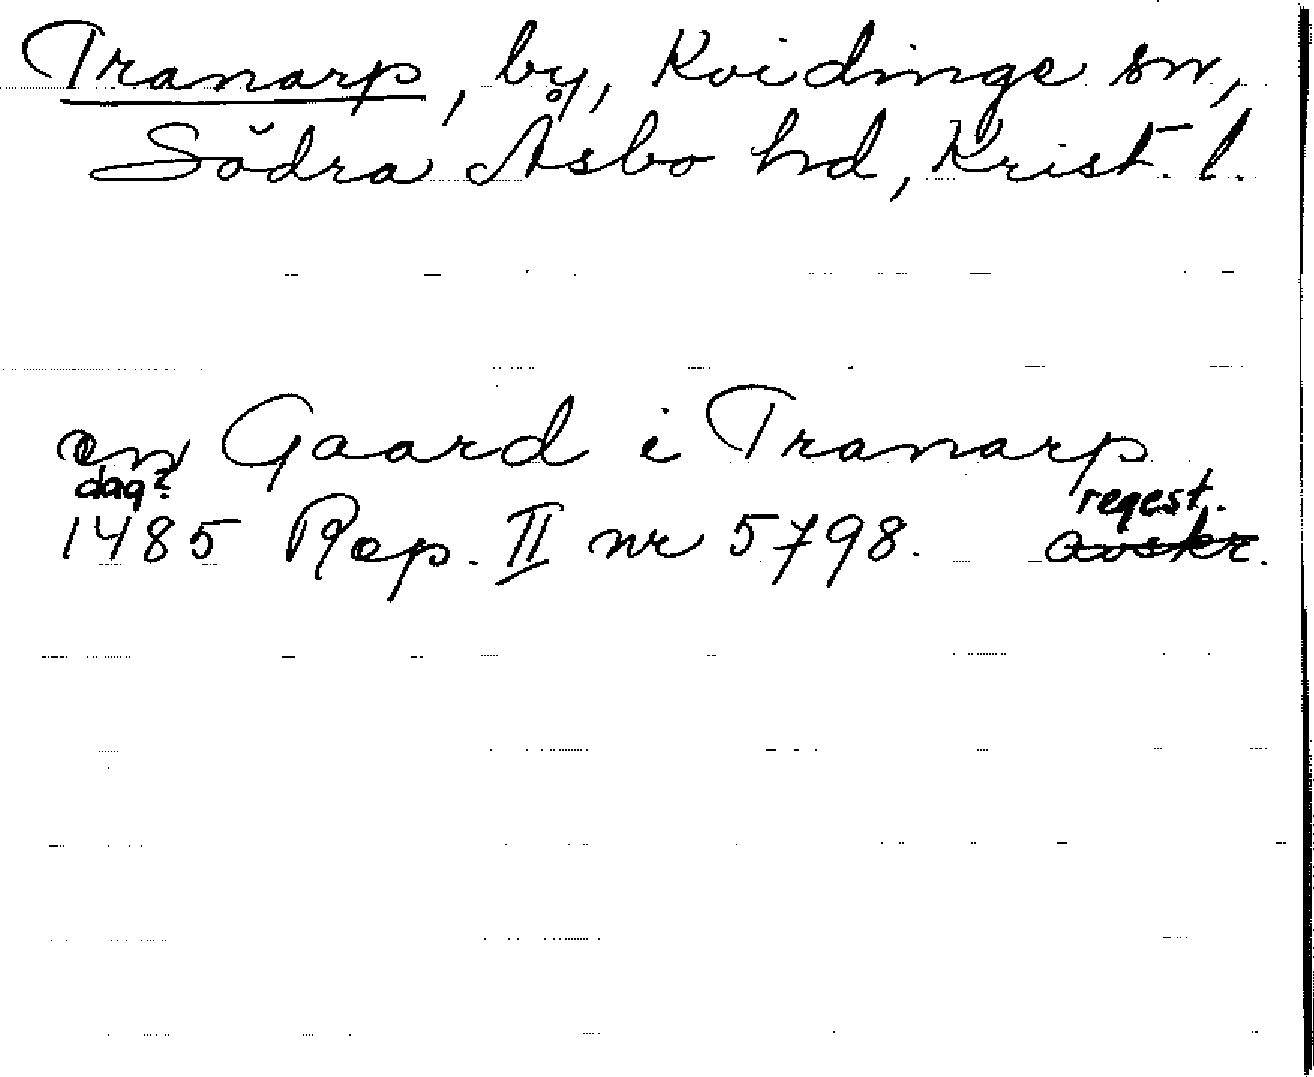 Tranarp, by, Kvidinge sn,
Södra Åsbo hd, Krist. l.
en Gaard i Tranarp
dag? regest.
1485 Rep. II nr 5798. avskr.